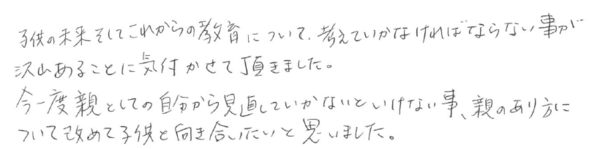 子供の未来そしてこれからの教育について、考えていかなければならない事が
沢山あることに気付かせて頂きました。
今一度親としての自分から見直していかないといけない事、親のあり方に
ついて改めて子供と向き合いたいと思いました。